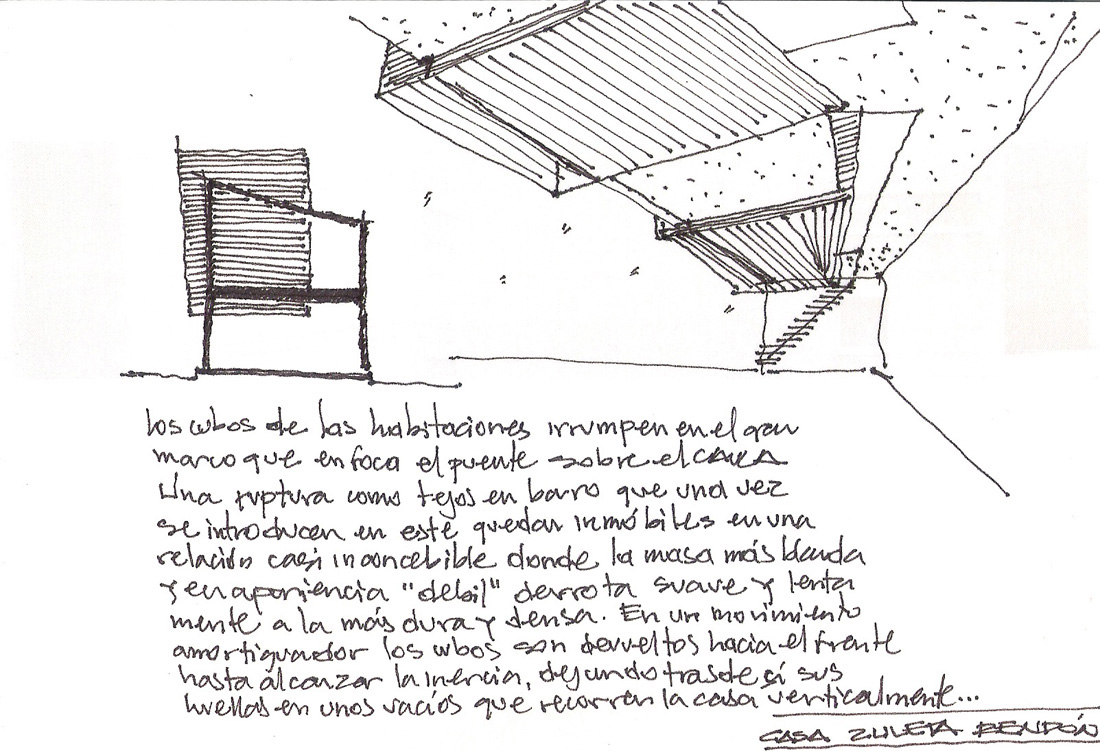 los cubos de las habitaciones irrumpen en el gran
marco que enfoca el puente sobre el CAUCA
Una ruptura como tejos en barro que una vez
se introducen en este quedan inmóbiles en una
relación casi inconcebible donde la masa más blanda
y en apariencia "débil" derrota suave y lenta
mente a la más dura y densa. En un movimiento
amortiguador los cubos son devueltos hacia el frente
hasta alcanzar la inercia, dejando tras de sí sus
huellas en unos vacíos que recorren la casa verticalmente...
CASA ZULETA RENDÓN